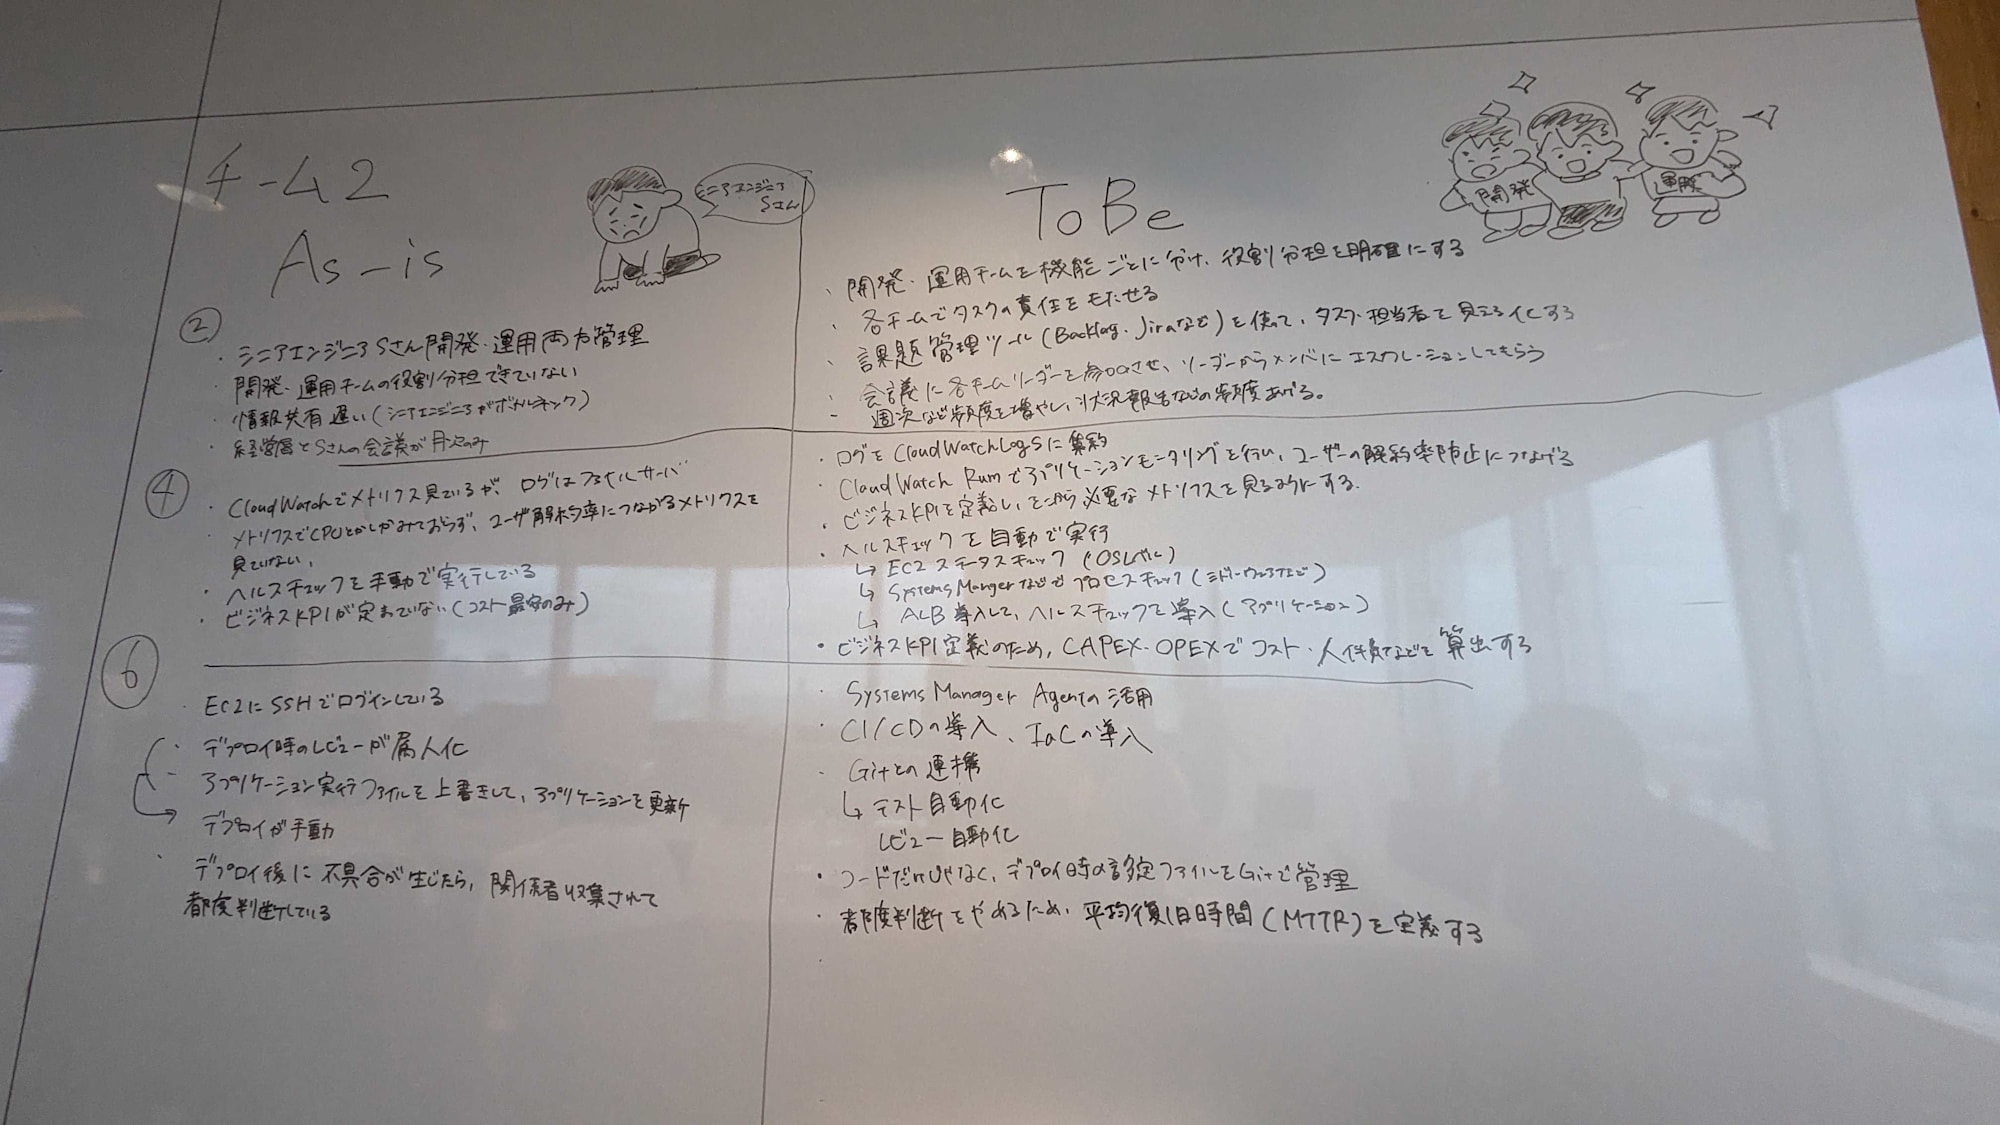 チーム2
As-is
シニアエンジニア
Sさん
②
・シニアエンジニアSさん開発・運用両方管理
・開発・運用チームの役割分担できていない
・情報共有遅い(シニアエンジニアがボトルネック)
・経営層とSさんの会議が月次のみ
④
・CloudWatchでメトリクス見ているが、ログはファイルサーバ
・メトリクスでCPUとかしかみておらず、ユーザ解約率につながるメトリクスを
見ていない、
・ヘルスチェックを手動で実行している
・ビジネスKPIが定まっていない(コスト最安のみ)
⑥
・EC2にSSHでログインしている
・デプロイ時のレビューが属人化
・アプリケーション実行ファイルを上書きして、アプリケーションを更新
→デプロイが手動
・デプロイ後に不具合が生じたら、関係者収集されて
都度判断している
To Be
開発
運用
・開発・運用チームを機能ごとに分け、役割分担を明確にする
・各チームでタスクの責任をもたせる
・課題管理ツール(Backlog・Jiraなど)を使って、タスク・担当者を見える化する
・会議に各チームリーダーを参加させ、リーダーからメンバにエスカレーションしてもらう
・週次など頻度を増やし、状況報告などの頻度あげる。
・ログをCloudWatchLogsに集約
・CloudWatch Rumでアプリケーションモニタリングを行い、ユーザーの解約率防止につなげる
・ビジネスKPIを定義し、そこから必要なメトリクスを見るようにする.
・ヘルスチェックを自動で実行
↳EC2ステータスチェック(OSレベル)
↳SystemsMangerなどでプロセスチェック(ミドルウェアなど)
↳ALB導入して、ヘルスチェックを導入(アプリケーション)
・ビジネスKPI定義のため、CAPEX・OPEXでコスト・人件費などを算出する
・Systems Manager Agentの活用
・CI/CDの導入、IaCの導入
・Gitとの連携
↳テスト自動化
レビュー自動化
・コードだけじゃなく、デプロイ時の設定ファイルをGitで管理
・都度判断をやめるため、平均復旧時間(MTTR)を定義する